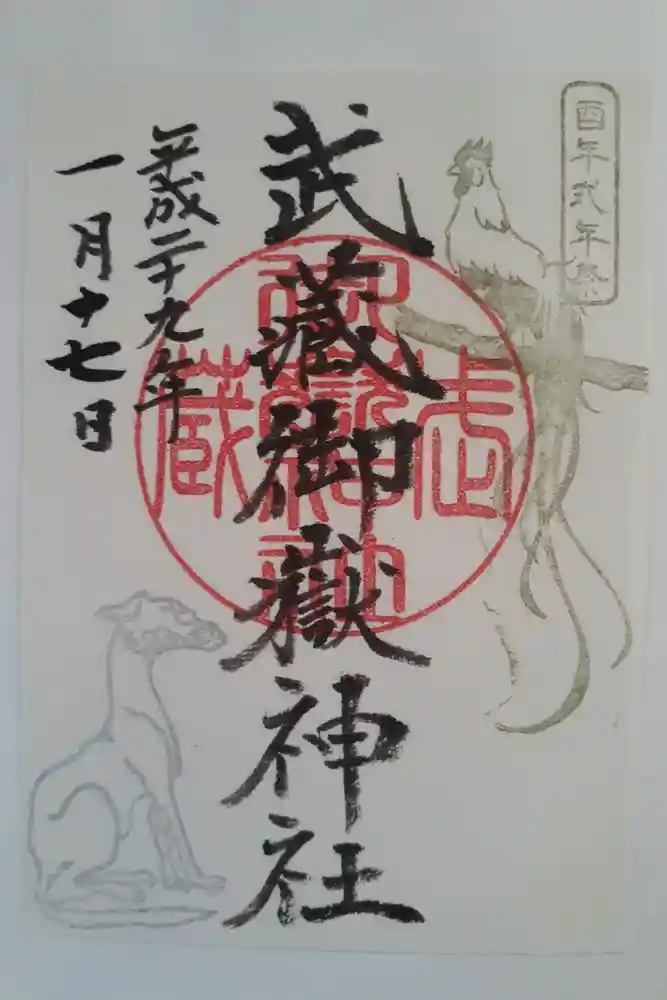 酉年式年祭
武蔵御嶽神社
平成二十九年
一月十七日
武蔵
御嶽神社